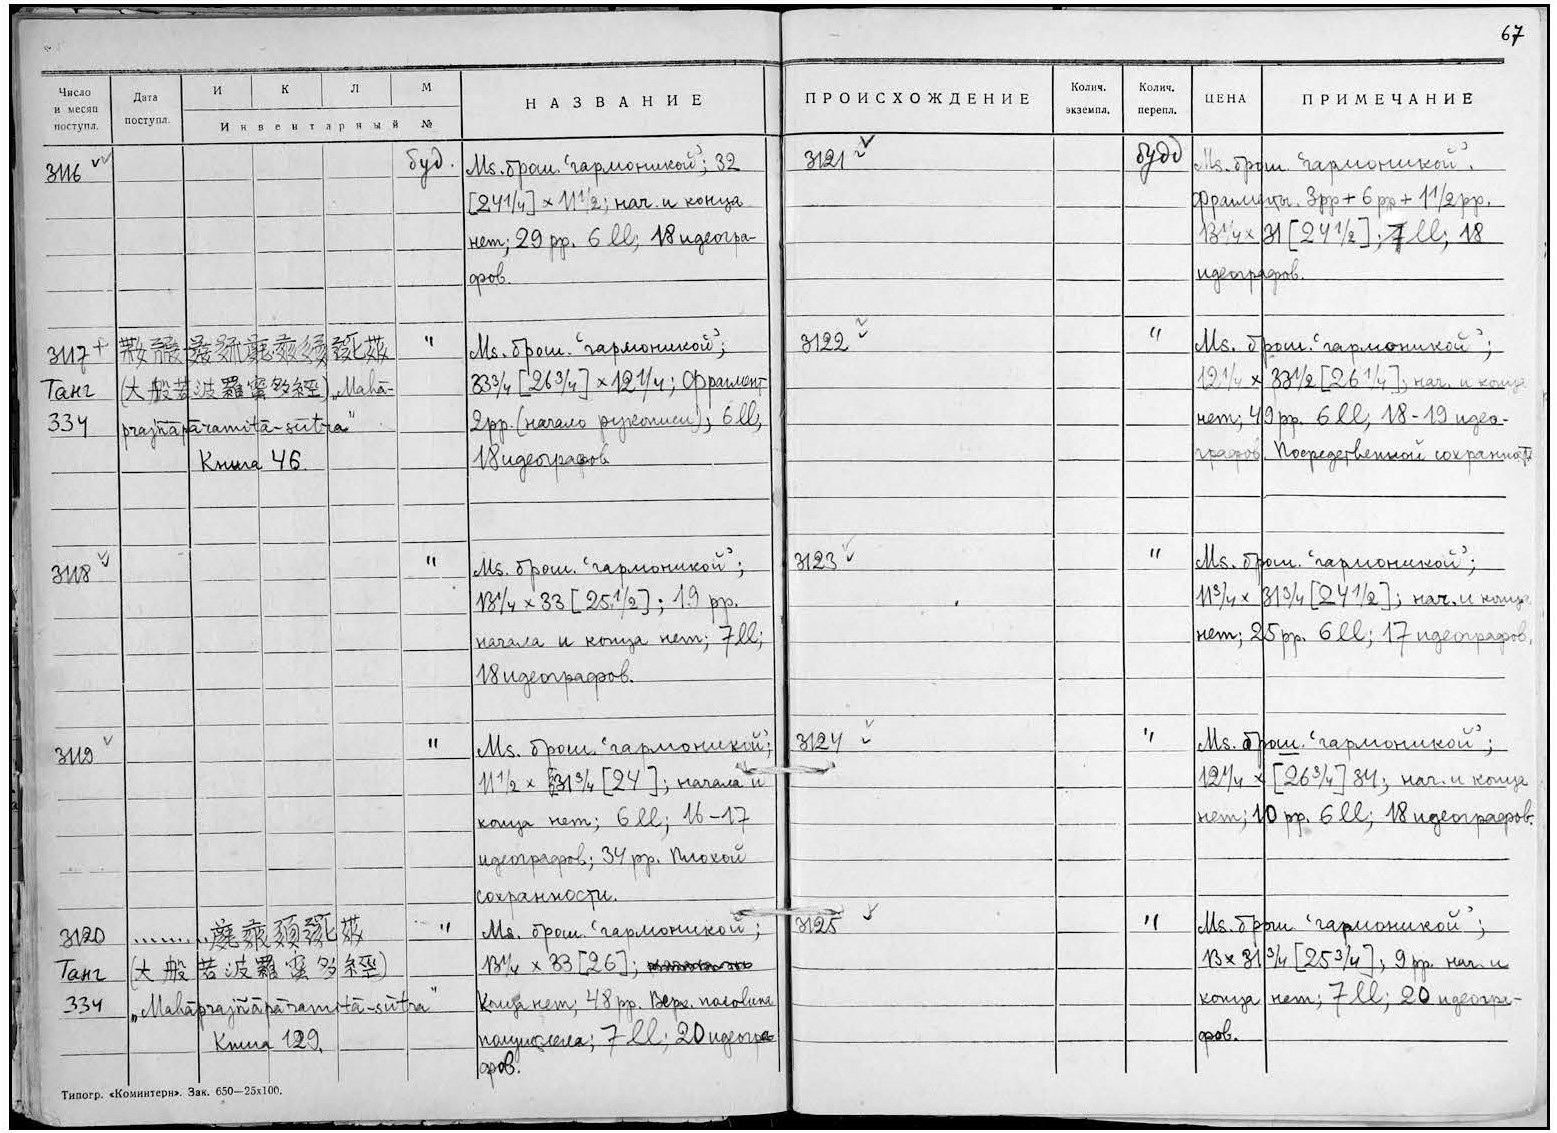 67
Число и месяц поступл.
Дата поступл.
И К Л М
Инвентарный №
НАЗВАНИЕ
ПРОИСХОЖДЕНИЕ
Колич. экземпл.
Колич. перепл.
ЦЕНА
ПРИМЕЧАНИЕ
3116 буд. Ms. брош. 'гармоникой'; 32
[24 1/4] × 11 1/2; нач. и конца
нет; 29 pp. 6 ll; 18 идеогра-
фов.
3117 + " Ms. брош. 'гармоникой';
Танг (大般若波羅蜜多經) „Mahā- 33 3/4 [26 3/4] × 12 1/4; Фрагмент
334 prajñāpāramitā-sūtra" 2 pp. (начало рукописи); 6 ll;
Книга 46 18 идеографов
3118 " Ms. брош. 'гармоникой';
13 1/4 × 33 [25 1/2]; 19 pp.
начала и конца нет; 7 ll;
18 идеографов.
3119 " Ms. брош. 'гармоникой';
11 1/2 × 31 3/4 [24]; начала и
конца нет; 6 ll; 16-17
идеографов; 34 pp. Плохой
сохранности.
3120 " Ms. брош. 'гармоникой';
Танг (大般若波羅蜜多經) 13 1/4 × 33 [26];
334 „Mahāprajñāpāramitā-sūtra" Конца нет; 48 pp. Верх. половина
Книга 129. 7 ll; 20 идеогра-
фов.
3121 будд Ms. брош. 'гармоникой'.
Фрагменты. 3 pp + 6 pp + 1 1/2 pp.
13 1/4 × 31 [24 1/2]; 7 ll; 18
идеографов.
3122 " Ms. брош. 'гармоникой';
12 1/4 × 33 1/2 [26 1/4]; нач. и конца
нет; 49 pp. 6 ll; 18-19 идео-
графов. Посредственной сохранности
3123 " Ms. брош. 'гармоникой';
11 3/4 × 31 3/4 [24 1/2]; нач. и конца
нет; 25 pp. 6 ll; 17 идеографов.
3124 " Ms. брош. 'гармоникой';
12 1/4 × [26 3/4] 34; нач. и конца
нет; 10 pp. 6 ll; 18 идеографов.
3125 " Ms. брош. 'гармоникой';
13 × 31 3/4 [25 3/4]; 9 pp. нач. и
конца нет; 7 ll; 20 идеогра-
фов.
Типогр. «Коминтерн». Зак. 650—25х100.